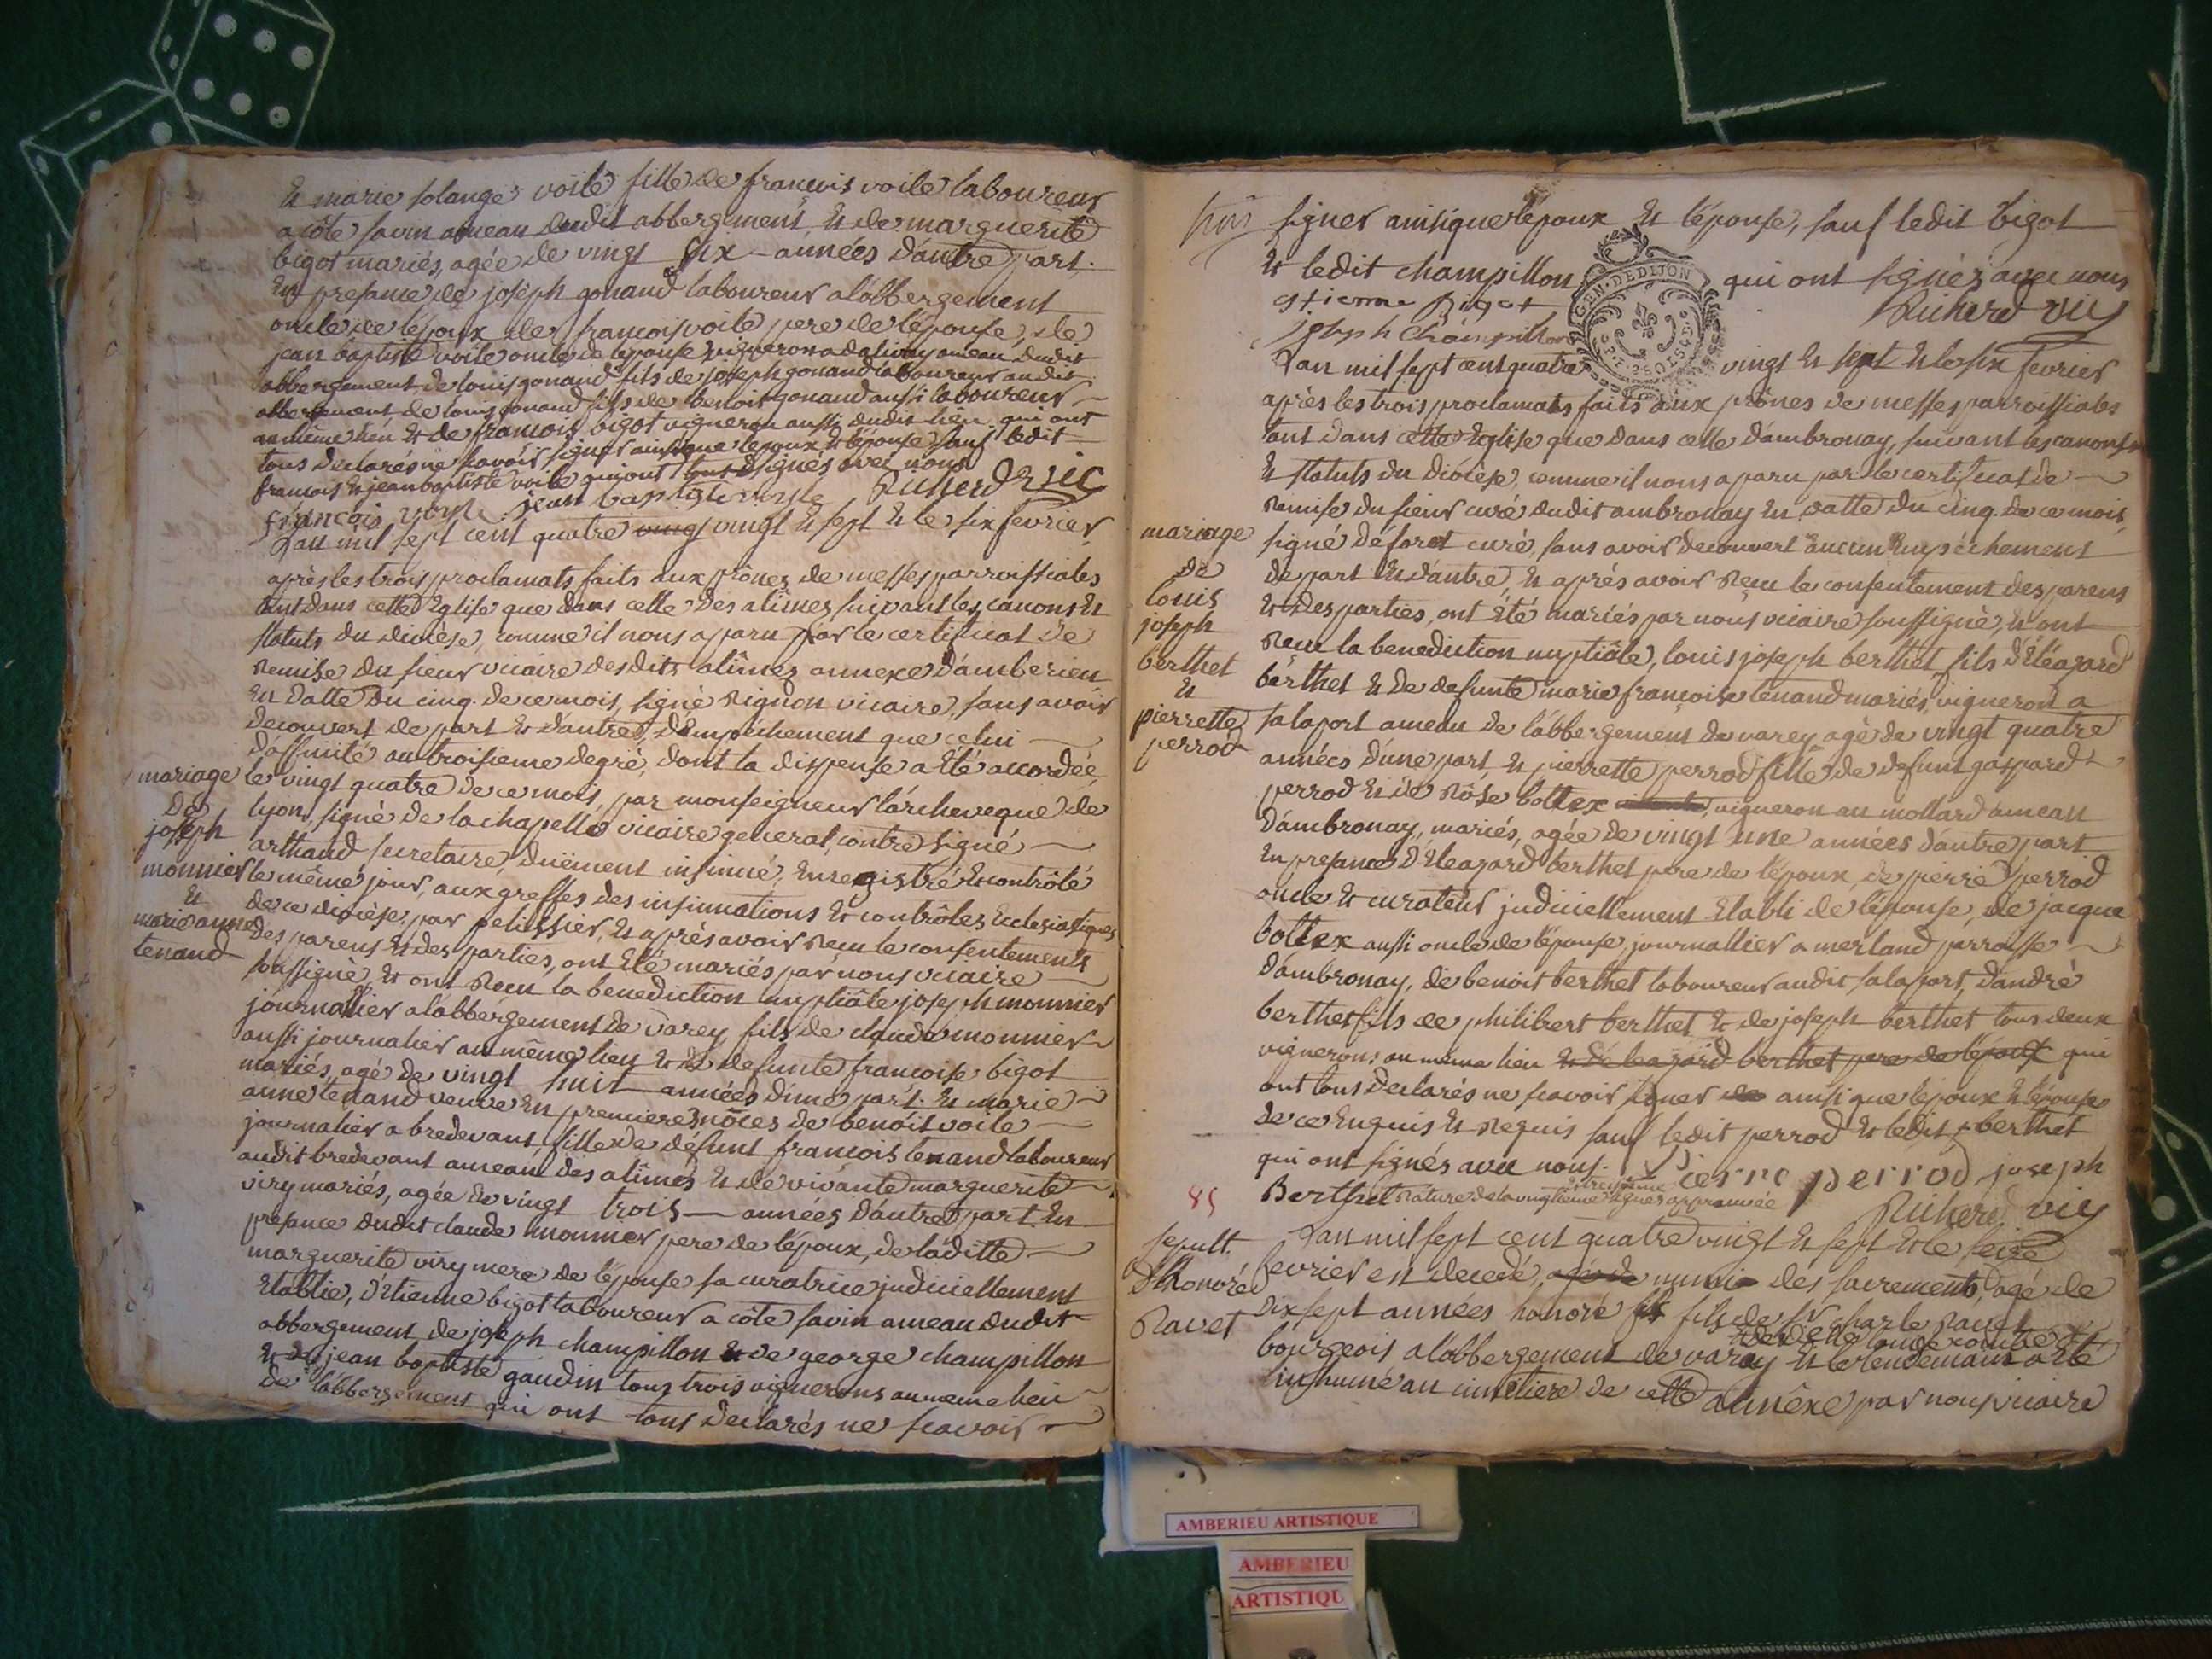 Et marie solange voile fille de francois voile laboureur
a côte savin ameau dudit abbergement, Et de marguerite
bigot mariés, agée de vingt six années d'autre part.
En presance de joseph gonand laboureur a l'abbergement
oncle de l'époux de francois voile pere de l'épouse, de
jean baptiste voile oncle de l'épouse vigneron a dalivoy ameau dudit
abbergement de louis gonand fils de joseph gonand laboureur audit
abbergement de louis gonand fils de benoit gonand aussi laboureur
au même lieu Et de francois bigot vigneron aussi dudit lieu qui ont
tous declarés ne scavoir signer ainsi que l'époux Et l'épouse sauf ledit
francois Et jean baptiste voile qui ont signés avec nous
françois voile jean baptiste voile Richerd vic
L'an mil sept cent quatre vingt vingt Et sept Et le six fevrier
après les trois proclamats faits aux prônes de messes parroissiales
tant dans cette Eglise que dans celle des alîmes suivant les canons Et
statuts du diocèse, comme il nous a paru par le certificat de
Remise du sieur vicaire desdits alîmes annexe d'amberieu
En datte du cinq de ce mois, signé Rignon vicaire, sans avoir
decouvert de part Et d'autre, d'Empêchement que celui
d'affinité au troisieme degré, dont la dispense a Eté accordée
le vingt quatre de ce mois, par monseigneur l'archeveque de
lyon, signé de la chapelle vicaire general, contre signé
arthaud secretaire, duëment insinué, Enregistré Et contrôlé
le même jour, aux greffes des insinuations Et contrôles Ecclesiastiques
de ce diocèse, par pelissier, Et après avoir Recu le consentement
des parens Et des parties, ont Eté mariés par nous vicaire
soussigné, Et ont Recu la benediction nuptiâle joseph monnier
journallier a l'abbergement de varey fils de claude monnier
aussi journalier au même lieu Et de defunte francoise bigot
mariés, agé de vingt huit années d'une part. Et marie
anne tenand veuve En premieres nôces de benoit voile
journalier a bredevant, fille de défunt francois tenand laboureur
audit bredevant ameau des alîmes Et de vivante marguerite
viry mariés, agée de vingt trois années d'autre part. En
presance dudit claude monnier pere de l'époux, de laditte
marguerite viry mere de l'épouse sa curatrice judiciellement
Etablie, d'étienne bigot laboureur a côte savin ameau dudit
abbergement, de joseph champillon Et de george champillon
Et de jean baptiste gaudin tous trois vignerons au meme lieu
de l'abbergement qui ont tous declarés ne scavoir
mariage
de
joseph
monnier
Et
marie anne
tenand
trois
signer ainsi que l'époux Et l'épouse, sauf ledit bigot
Et ledit champillon qui ont signés avec nous
GEN. DE DIJON
etienne Bigot Richerd vic
joseph Champillon
L'an mil sept cent quatre vingt Et sept Et le six fevrier
après les trois proclamats faits aux prônes de messes parroissiales
tant dans cette Eglise que dans celle d'ambronay, suivant les canons
Et statuts du diocèse, comme il nous a paru par le certificat de
Remise du sieur curé dudit ambronay En datte du cinq de ce mois
signé déforet curé, sans avoir decouvert aucun Empêchement
de part Et d'autre, Et aprés avoir Recu le consentement des parens
Et des parties, ont Eté mariés par nous vicaire soussigné, Et ont
Recu la benediction nuptiâle, louis joseph berthet fils d'Eléazard
berthet Et de defunte marie francoise tenand mariés, vigneron a
salaport ameau de l'abbergement de varey agé de vingt quatre
années d'une part, Et pierrette perrod fille de defunt gaspard
perrod Et de Rôse bottex vigneron au mollard ameau
d'ambronay, mariés, agée de vingt une années d'autre part
En presance d'Eleazard berthet pere de l'époux, de pierre perrod
oncle Et curateur judiciellement Etabli de l'épouse, de jacque
bottex aussi oncle de l'épouse, journallier a merland parroisse
d'ambronay, de benoit berthet laboureur audit salaport, d'andré
berthet fils de philibert berthet Et de joseph berthet tous deux
vignerons au meme lieu Et d'Eleazard berthet pere de l'époux qui
ont tous declarés ne scavoir signer ainsi que l'époux Et l'épouse
de ce Enquis Et Requis sauf ledit perrod Et ledit berthet
qui ont signés avec nous. pierre perrod joseph
Berthet Rature de la vingtieme lignes approuvée
Richerd vic
mariage
de
louis
joseph
berthet
Et
pierrette
perrod
85
sepult.
d'honoré
Ravet
L'an mil sept cent quatre vingt Et sept Et le seize
fevrier est decedé, agé de munie des sacrements, agé de
dix sept années honoré fils de sr charle Ravet
bourgeois a l'abbergement de varey Et le lendemain a Eté
Inhumé au cimetiere de cette annêxe par nous vicaire
AMBERIEU ARTISTIQUE
AMBERIEU
ARTISTIQU